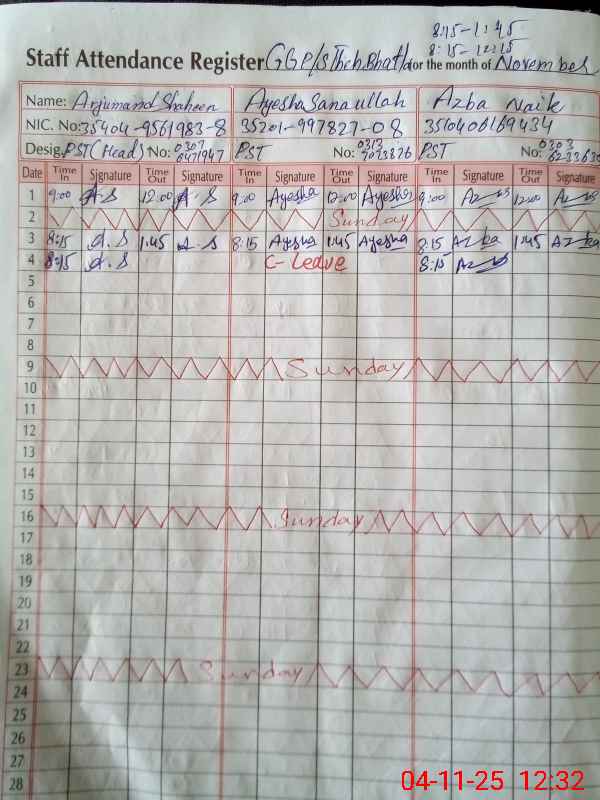 8:15-1:45
8:15-12:15
Staff Attendance Register GGP/S for the month of November
Name: Arjumand Shaheen Ayesha Sanaullah Azba Naik
NIC. No: 35404-9561983-8 35201-997827-08 3510406169434
Desig: PST (Head) No: 0307 6471947 PST No: 0313 7073826 PST No: 0303
Date Time In Signature Time Out Signature Time In Signature Time Out Signature Time In Signature Time Out Signature
1 9:00 A.S 12:00 A.S 9:00 Ayesha 12:00 Ayesha 9:00 12:00
2 Sunday
3 8:15 A.S 1:45 A.S 8:15 Ayesha 1:45 Ayesha 8:15 Azba 1:45 Azba
4 8:15 A.S C- Leave 8:15
5
6
7
8
9 Sunday
10
11
12
13
14
15
16 Sunday
17
18
19
20
21
22
23 Sunday
24
25
26
27
28
04-11-25 12:32